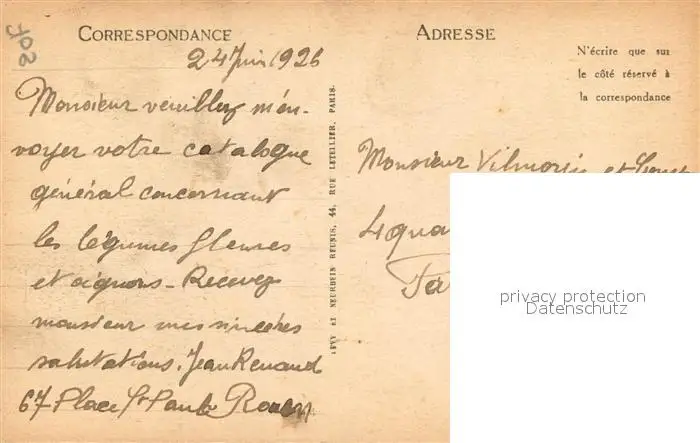 502
CORRESPONDANCE
24 Juin 1926
Monsieur veuillez m'en-
voyer votre catalogue
général concernant
les légumes fleures
et oignons - Recevez
monsieur mes sincères
salutations. Jean Renaud
67 Place St Paul Rouen
LEVY ET NEURDEIN REUNIS, 44, RUE LETELLIER, PARIS.
ADRESSE
N'écrire que sur
le côté réservé à
la correspondance
Monsieur Vilmorin et
4 qua
privacy protection
Datenschutz